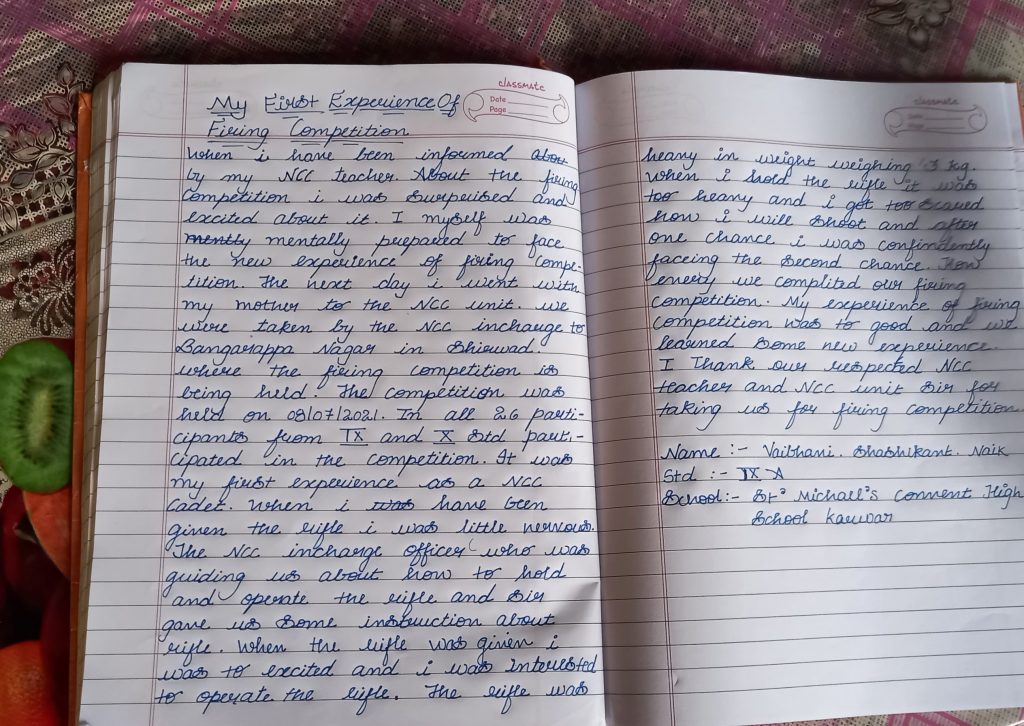 classmate
Date
Page
My First Experience Of
Firing Competition
When i have been informed
by my NCC teacher. About the firing
Competition i was Surperised and
excited about it. I myself was
mently mentally prepared to face
the new experience of firing Compe-
tition. The next day i went with
my mother to the NCC unit. we
were taken by the NCC incharge to
Bangarappa Nagar in Shirwad.
where the firing competition is
being held. The competition was
held on 08/07/2021. In all 26 parti-
cipants from IX and X Std parti-
cipated in the competition. It was
my first experience as a NCC
Cadet. When i was have been
given the rifle i was little nervous.
The NCC incharge officer who was
guiding us about how to hold
and operate the rifle and Sir
gave us Some instruction about
rifle. When the rifle was given i
was to excited and i was Interested
to operate the rifle. The rifle was
classmate
Date
Page
heavy in weight weighing 3 kg.
when i hold the rifle it was
too heavy and i got too scared
how i will shoot and after
one chance i was confindently
faceing the second chance. How
enerty we complited our firing
competition. My experience of firing
competition was to good and we
learned some new experience.
I Thank our respected NCC
teacher and NCC unit Sir for
taking us for firing competition
Name :- Vaibhani. Shashikant. Naik
Std :- IX A
School:- St° Michael's Convent High
School Karwar